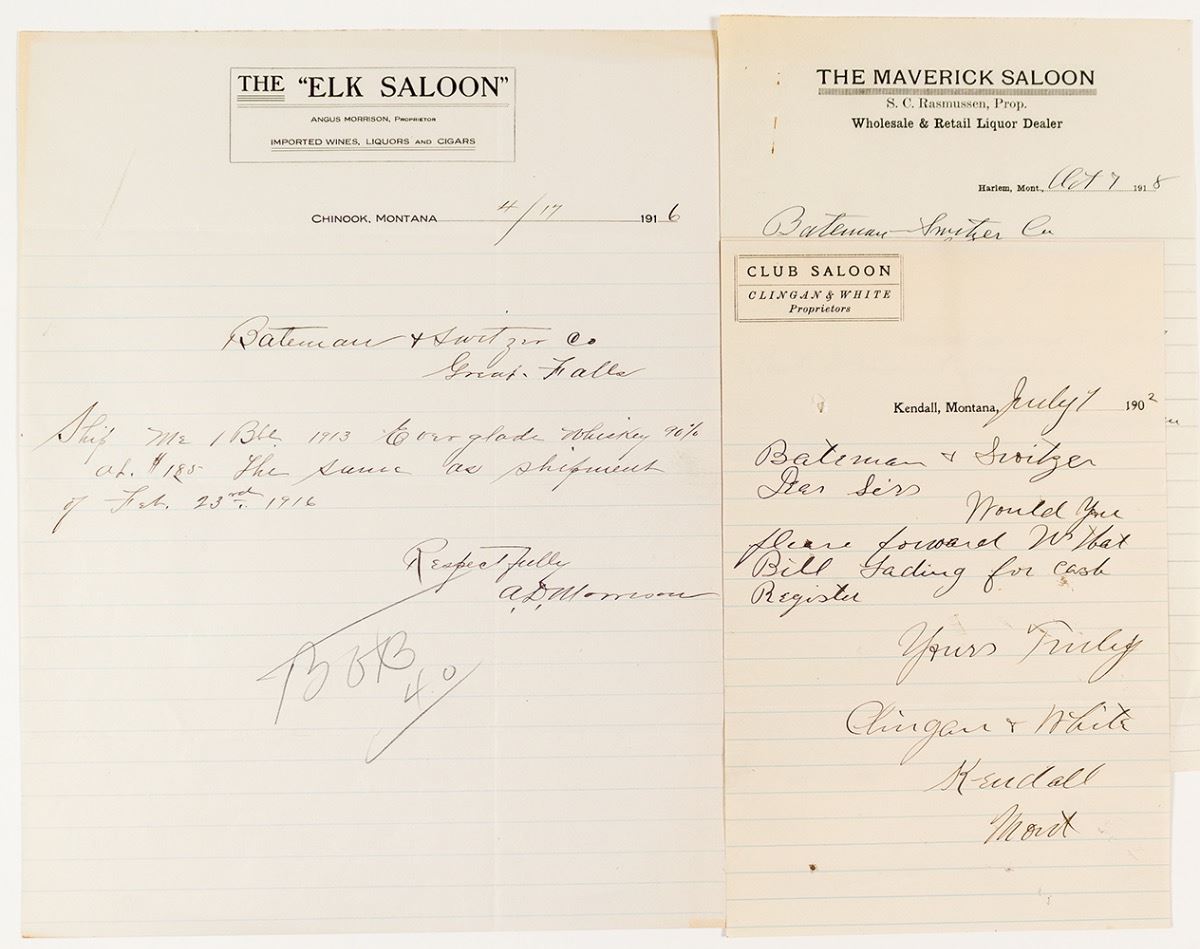 THE "ELK SALOON"
ANGUS MORRISON, PROPRIETOR
IMPORTED WINES, LIQUORS AND CIGARS
CHINOOK, MONTANA 4/17 1916
Bateman & Switzer Co
Great Falls
Ship Me 1 Bbl. 1913 Everglade Whiskey 90%
at $1.85 The same as shipment
of Feb. 23rd. 1916
Respectfully
A.D. Morrison
40
THE MAVERICK SALOON
S. C. Rasmussen, Prop.
Wholesale & Retail Liquor Dealer
Harlem, Mont., Oct 7 1918
Bateman Switzer Co
CLUB SALOON
CLINGAN & WHITE
Proprietors
Kendall, Montana, July 7 1902
Bateman & Switzer
Dear Sirs
Would You
please forward
Bill Lading for cash
Register
Yours Truly
Clingan & White
Kendall
Mont